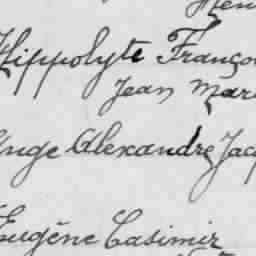 Hen
Hippolyte Franço
Jean Mar
Ange Alexandre Jacq
Eugène Casimir